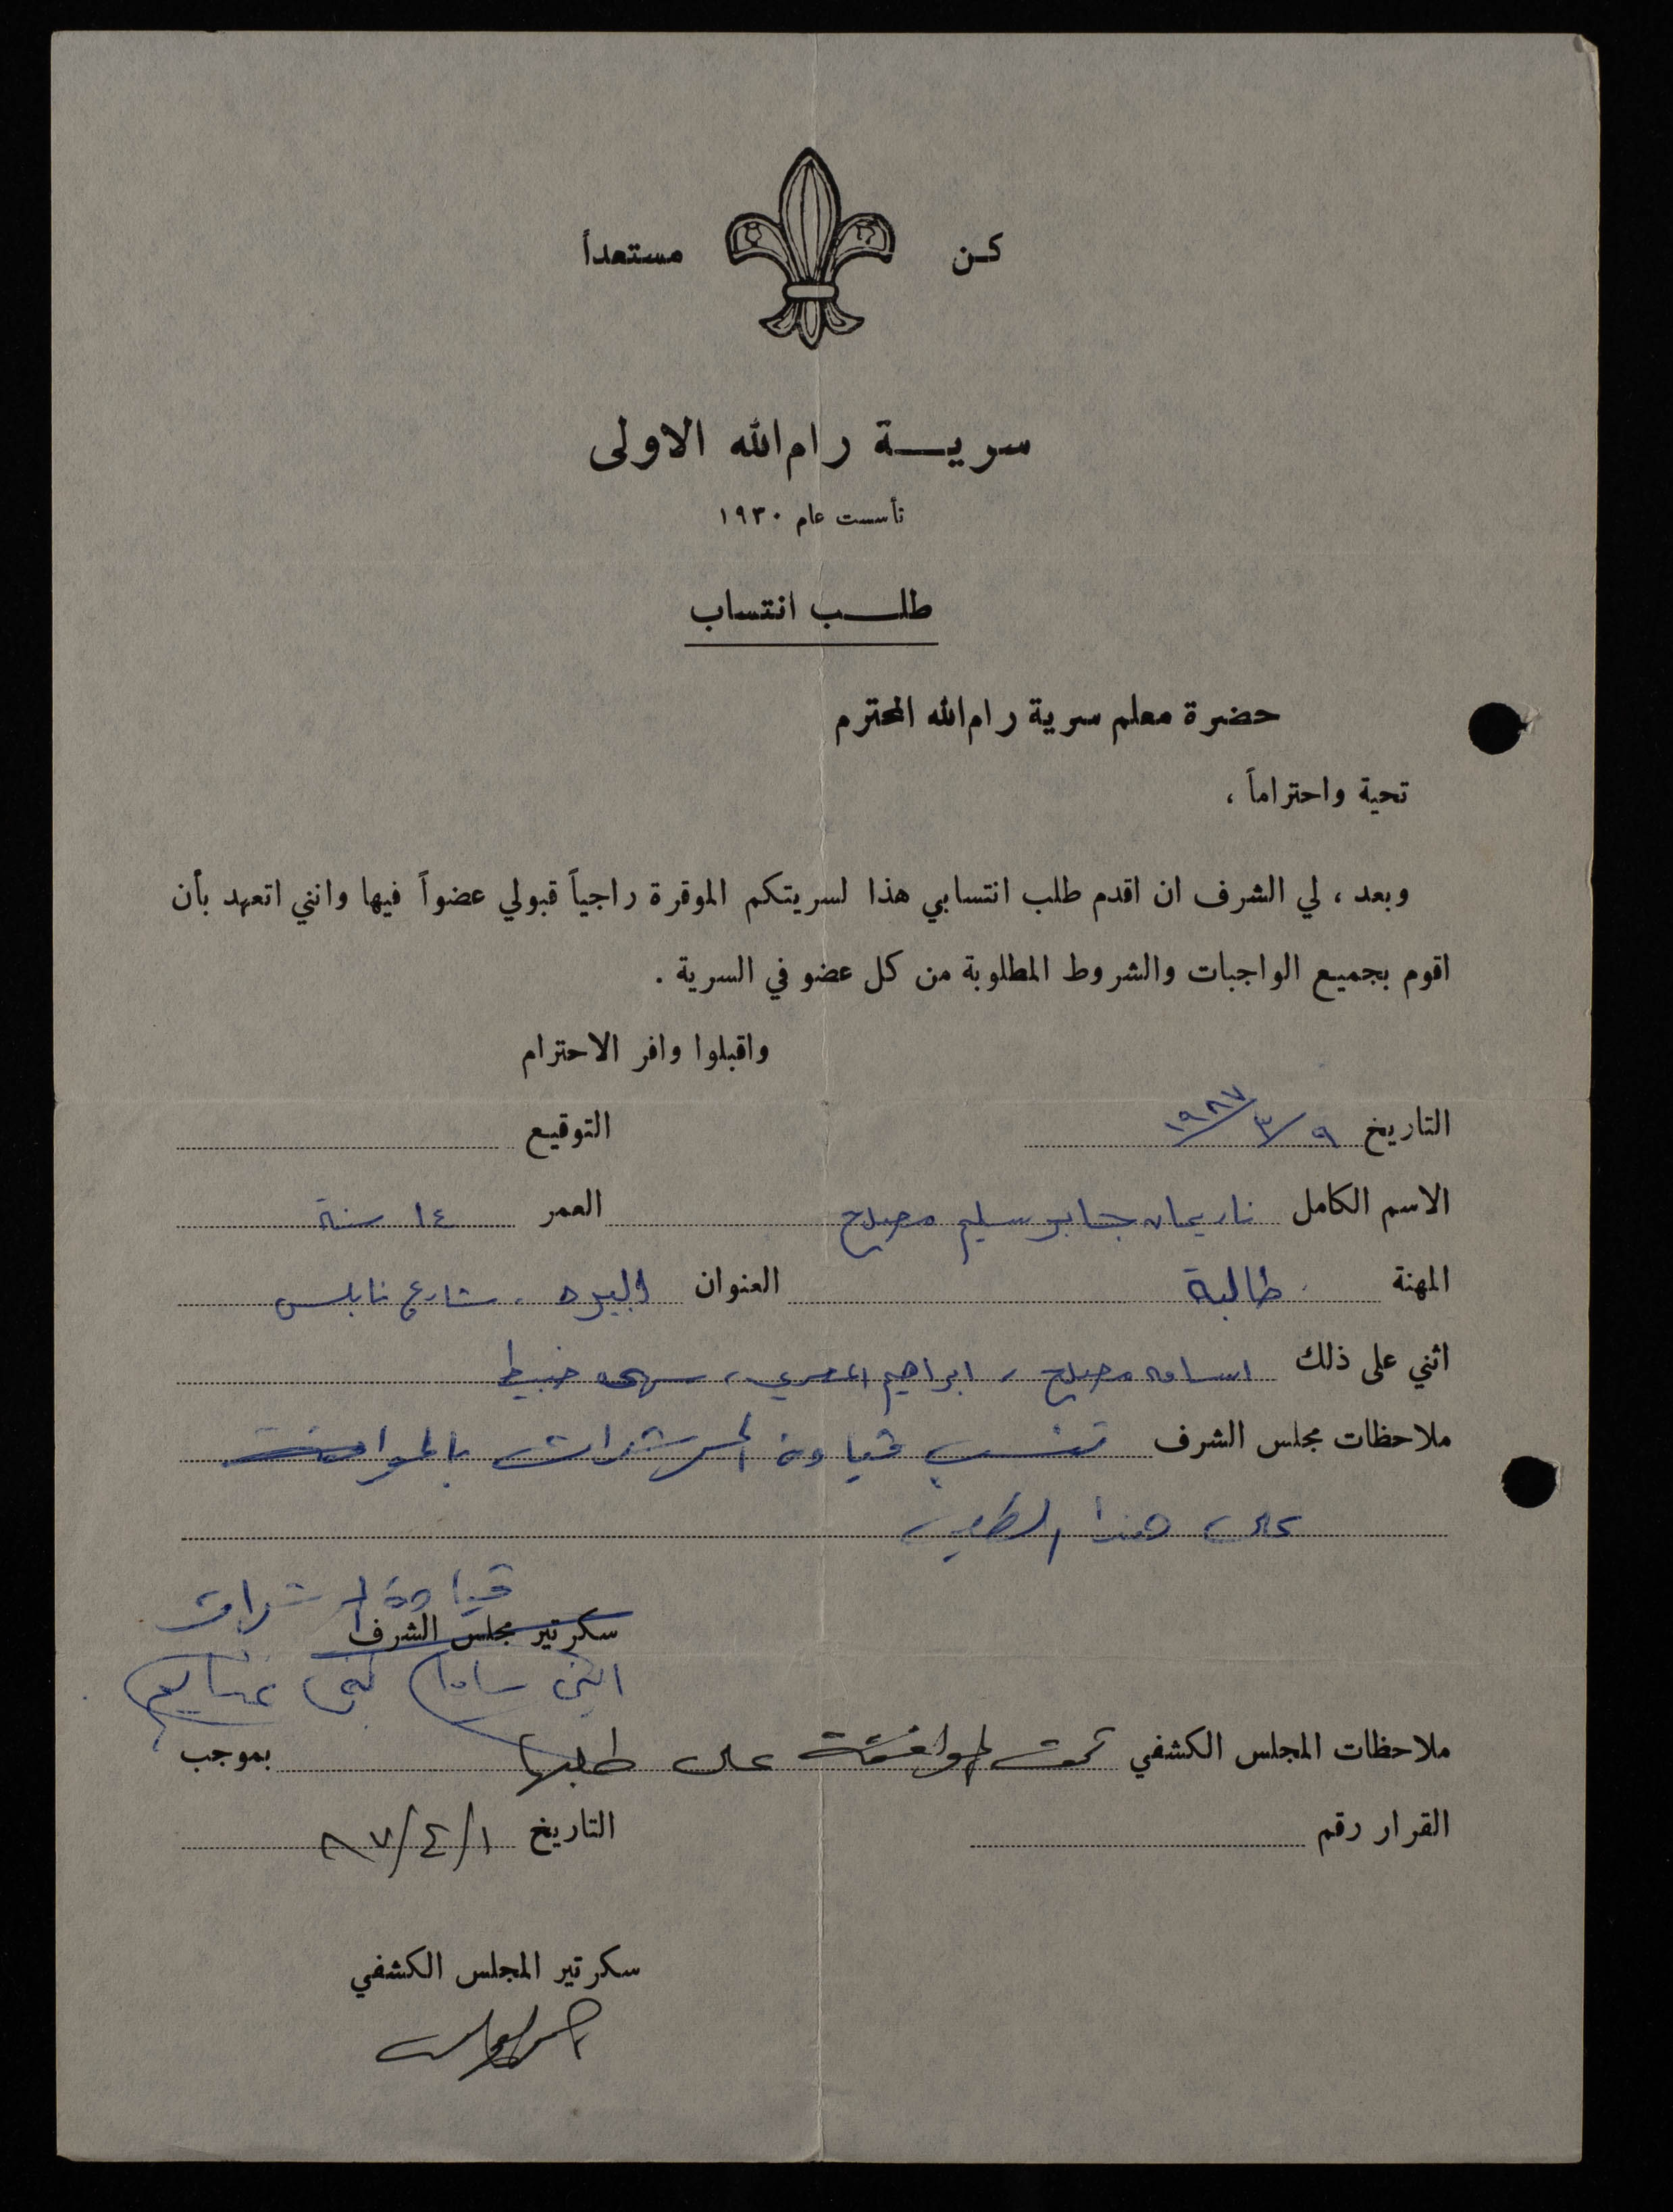 كن مستعداً
سرية رام الله الاولى
تأسست عام ١٩٣٠
طلب انتساب
حضرة معلم سرية رام الله المحترم
تحية واحتراماً ،
وبعد ، لي الشرف ان اقدم طلب انتسابي هذا لسريتكم الموقرة راجياً قبولي عضواً فيها وانني اتعهد بأن
اقوم بجميع الواجبات والشروط المطلوبة من كل عضو في السرية .
واقبلوا وافر الاحترام
التاريخ ٩/٣/١٩٨٧ التوقيع
الاسم الكامل ناريمان جابر سليم مصلح العمر ١٤ سنة
المهنة طالبة العنوان البيره . شارع نابلس
اثني على ذلك اسامه مصلح ، ابراهيم المصري ،
ملاحظات مجلس الشرف تنسب قيادة المرشدات بالموافقة
على هذا الطلب
قيادة المرشدات
سكرتير مجلس الشرف
ملاحظات المجلس الكشفي تمت الموافقة على طلبها بموجب
القرار رقم التاريخ ١/٤/٨٧
سكرتير المجلس الكشفي